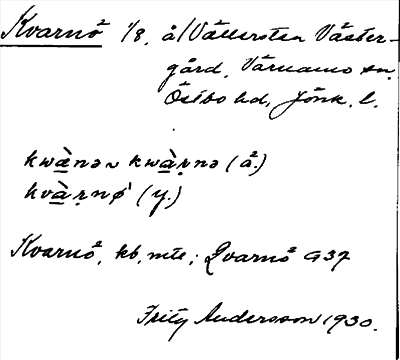 Kvarnö 1/8, å/Vällersten Väster-
gård, Värnamo sn.
Östbo hd, Jönk. l.
kwànə ~ kwàṛnə (å.)
kvàṛnø (y.)
Kvarnö, kb, mtl; Qvarnö G37
Fritz Andersson 1930.